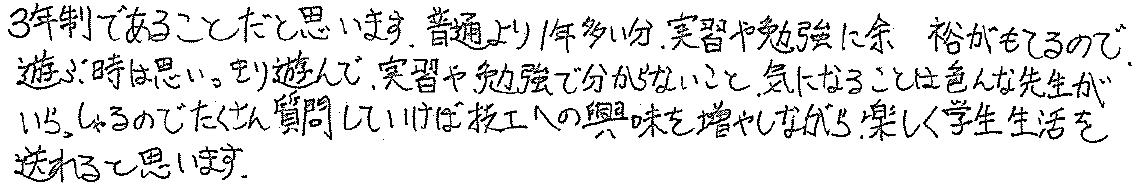 3年制であることだと思います。普通より1年多い分、実習や勉強に余 裕がもてるので、
遊ぶ時は思いっきり遊んで、実習や勉強で分からないこと、気になることは色んな先生が
いらっしゃるのでたくさん質問していけば技工への興味を増やしながら、楽しく学生生活を
送れると思います。